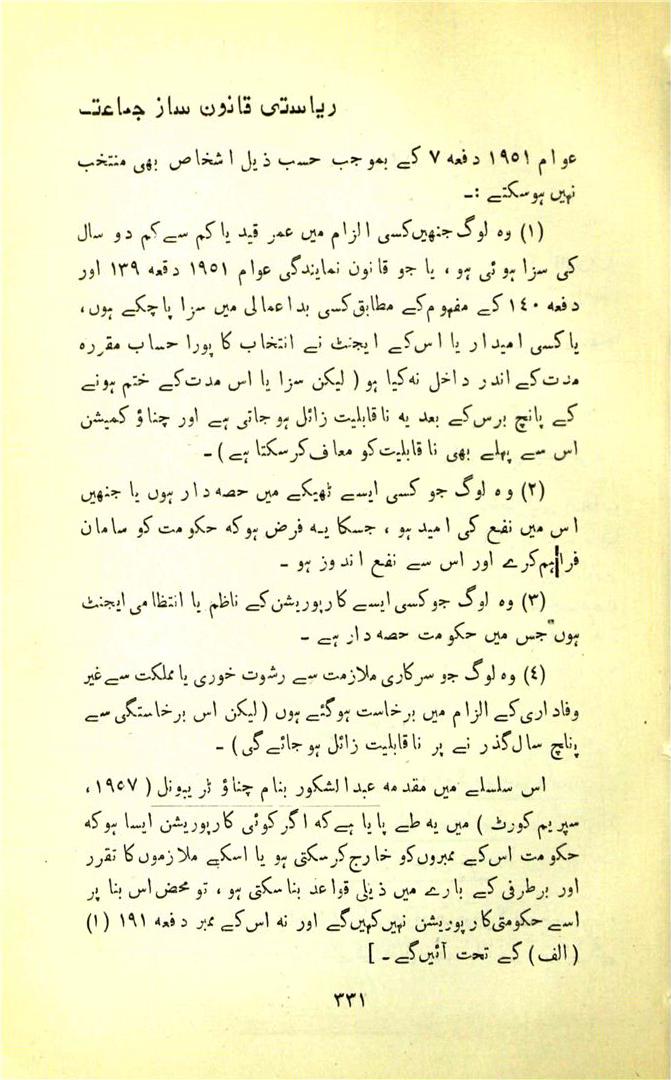 ریاستی قانون ساز جماعت
عوام ۱۹۵۱ دفعه ۷ کے بموجب حسب ذیل اشخاص بھی منتخب
نہیں ہوسکتے :-
(۱) وہ لوگ جنھیں کسی الزام میں عمر قید یا کم سے کم دو سال
کی سزا ہوئی ہو ، یا جو قانون نمایندگی عوام ۱۹۵۱ دفعه ۱۳۹ اور
دفعه ۱۴۰ کے مفہوم کے مطابق کسی بداعمالی میں سزا پاچکے ہوں ،
یا کسی امیدار یا اس کے ایجنٹ نے انتخاب کا پورا حساب مقررہ
مدت کے اندر داخل نه کیا ہو ( لیکن سزا یا اس مدت کے ختم ہونے
کے پانچ برس کے بعد یه ناقابلیت زائل ہوجاتی ہے اور چناؤ کمیشن
اس سے پہلے بھی ناقابلیت کو معاف کرسکتا ہے ) ۔
(۲) وہ لوگ جو کسی ایسے ٹھیکے میں حصه دار ہوں یا جنھیں
اس میں نفع کی امید ہو ، جسکا یه فرض ہو که حکومت کو سامان
فراہم کرے اور اس سے نفع اندوز ہو ۔
(۳) وہ لوگ جو کسی ایسے کارپوریشن کے ناظم یا انتظامی ایجنٹ
ہوں جس میں حکومت حصه دار ہے ۔
(٤) وہ لوگ جو سرکاری ملازمت سے رشوت خوری یا مملکت سے غیر
وفاداری کے الزام میں برخاست ہوگئے ہوں ( لیکن اس برخاستگی سے
پناچ سال گذرنے پر ناقابلیت زائل ہوجائے گی ) ۔
اس سلسلے میں مقدمه عبدالشکور بنام چناؤ ٹریبونل ( ۱۹۵۷ ،
سپریم کورٹ ) میں یه طے پایا ہے که اگر کوئی کارپوریشن ایسا ہو که
حکومت اس کے ممبروں کو خارج کرسکتی ہو یا اسکے ملازموں کا تقرر
اور برطرفی کے بارے میں ذیلی قواعد بناسکتی ہو ، تو محض اس بنا پر
اسے حکومتی کارپوریشن نہیں کہیں گے اور نه اس کے ممبر دفعه ۱۹۱ (۱)
( الف ) کے تحت آئیں گے ۔ ]
۳۳۱